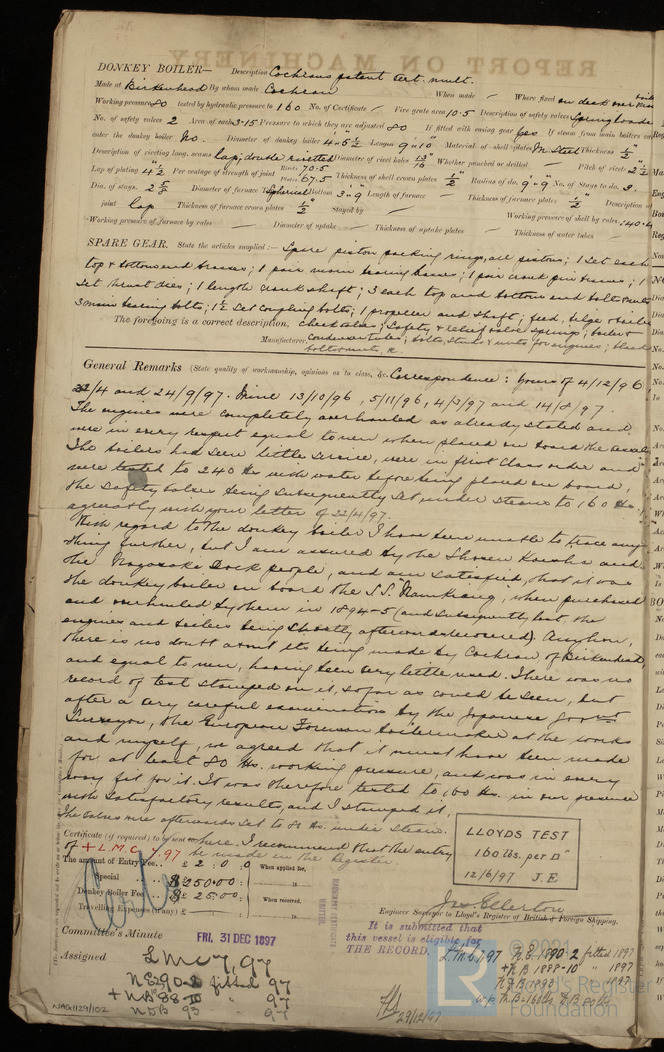 DONKEY BOILER— Description Cochran's patent vert. mult.
Made at Birkenhead By whom made Cochran When made — Where fixed on deck over main boiler
Working pressure 80 tested by hydraulic pressure to 160 No. of Certificate — Fire grate area 10.5 Description of safety valves Spring loaded
No. of safety valves 2 Area of each 3.15 Pressure to which they are adjusted 80 If fitted with easing gear Yes If steam from main boilers can
enter the donkey boiler No. Diameter of donkey boiler 4'=5½ Length 9'=10 Material of shell plates M Steel Thickness ½"
Description of riveting long. seams lap, double rivetted Diameter of rivet holes 13/16" Whether punched or drilled — Pitch of rivets 2½
Lap of plating 4½ Per centage of strength of joint Rivets 70.5 Plates 67.5 Thickness of shell crown plates ½" Radius of do. 9'=9 No. of Stays to do. 3.
Dia. of stays. 2⅛ Diameter of furnace Top Spherical Bottom 3'=9 Length of furnace — Thickness of furnace plates ½" Description of
joint Lap Thickness of furnace crown plates ½" Stayed by — Working pressure of shell by rules 140.4
Working pressure of furnace by rules — Diameter of uptake — Thickness of uptake plates — Thickness of water tubes —
SPARE GEAR. State the articles supplied:— Spare piston packing rings, all pistons; 1 Set each
top & bottom end brasses; 1 pair main bearing brasses; 1 pair crank pin brasses; 1
Set thrust dies; 1 length crank shaft; 3 each top and bottom end bolts & nuts
3 main bearing bolts; 1½ Set coupling bolts; 1 propeller and shaft; feed, bilge & boiler
The foregoing is a correct description, check valves; Safety & relief valve springs; boiler &
Manufacturer. Condenser tubes; bolts, studs & nuts for engines; blade
bolts & nuts, &c.
General Remarks (State quality of workmanship, opinions as to class, &c. Correspondence: Yours of 4/12/96,
22/4 and 24/9/97. Mine 13/10/96, 5/11/96, 4/3/97 and 14/8/97.
The engines were completely overhauled as already stated and
were in every respect equal to new when placed on board the vessel.
The boilers had seen little service, were in first class order and
were tested to 240 lbs with water before being placed on board,
the safety valves being subsequently set under steam to 160 lbs
agreeably with your letter of 22/4/97.
With regard to the donkey boiler I have been unable to trace any
thing further, but I am assured by the Shosen Kaisha and
the Nagasaki Dock people, and am satisfied, that it was
the donkey boiler on board the S.S. "Namkiang", when purchased
and overhauled by them in 1894-5 (and subsequently lost, the
engines and boilers being shortly afterwards recovered). Anyhow,
there is no doubt about its being made by Cochran of Birkenhead,
and equal to new, having been very little used. There was no
record of test stamped on it, so far as could be seen, but
after a very careful examination by the Japanese Govrt.
Surveyor, the European Foreman boilermaker at the works
and myself, we agreed that it must have been made
for at least 80 lbs. working pressure, and was in every
way fit for it. It was therefore tested to 160 lbs. in our presence
with satisfactory results, and I stamped it,
The valves were afterwards set to 80 lbs. under steam.
Certificate (if required) to be sent to here. I recommend that the entry
of + L.M.C. 7,97 be made in the Register
LLOYDS TEST
160 lbs. per □"
12/6/97 J.E.
The amount of Entry Fee.. £ 2 : 0 : 0 When applied for,
Special .. $ 250.00 :
Donkey Boiler Fee .. $ 25.00 : When received,
Travelling Expenses (if any) £ — :
Jno Ellerton
Engineer Surveyor to Lloyd's Register of British & Foreign Shipping.
Committee's Minute FRI. 31 DEC 1897
It is submitted that
this vessel is eligible for
THE RECORD. L.M.C. 7,97
Assigned LMC 7,97
NE 90-2 fitted 97
+ NB 88-10 " 97
NDB 93 " 97
N.E. 1890-2 fitted 1897
+ N.B 1888-10 " 1897
29/12/97
NAG1129/102
© 2021
LR
Lloyd's Register
Foundation